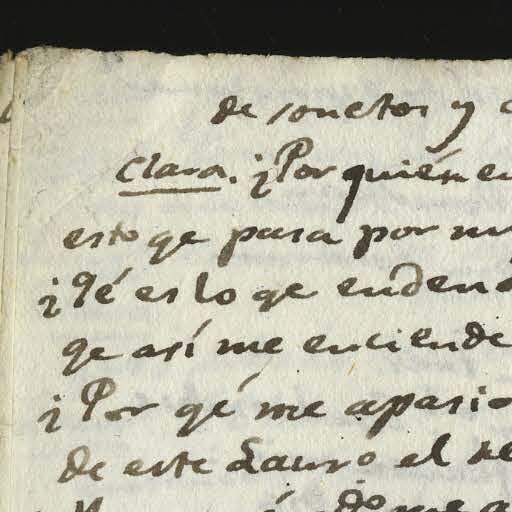 de sonetos y
Clara. ¿Por quién en
esto qe pasa por mi
¿Qé es lo qe enden
qe así me enciende
¿Por qé me apasio
de este Lauso al
me a